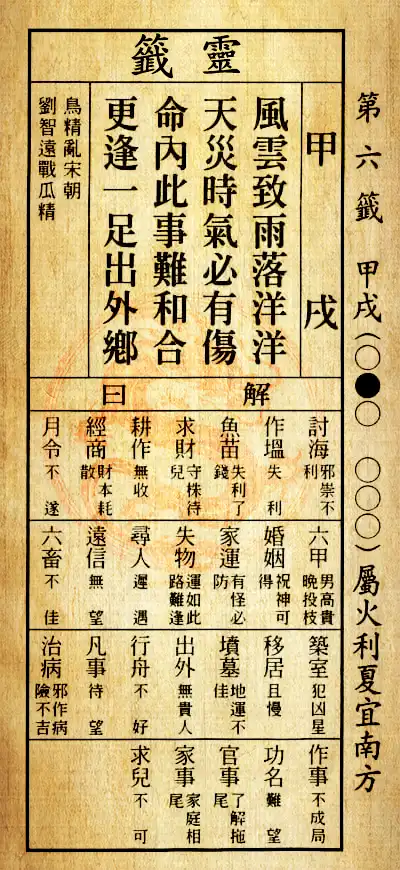 第六籤 甲戌(○●○ ○○○)屬火利夏宜南方
靈籤
甲戌
風雲致雨落洋洋
天災時氣必有傷
命內此事難和合
更逢一足出外鄉
鳥精亂宋朝
劉智遠戰瓜精
解曰
討海 邪祟不利
作塭 失利
魚苗 失利了錢
求財 守株待兒
耕作 無收
經商 財本耗散
月令 不遂
六甲 男高貴晚投枝
婚姻 祝神可得
家運 有怪必防
失物 運如此路難逢
尋人 遲遇
遠信 無望
六畜 不佳
築室 犯凶星
移居 且慢
墳墓 地運不佳
出外 無貴人
行舟 不好
凡事 待望
治病 邪作病險不吉
作事 不成局
功名 難望
官事 了解拖尾
家事 家庭相尾
求兒 不可